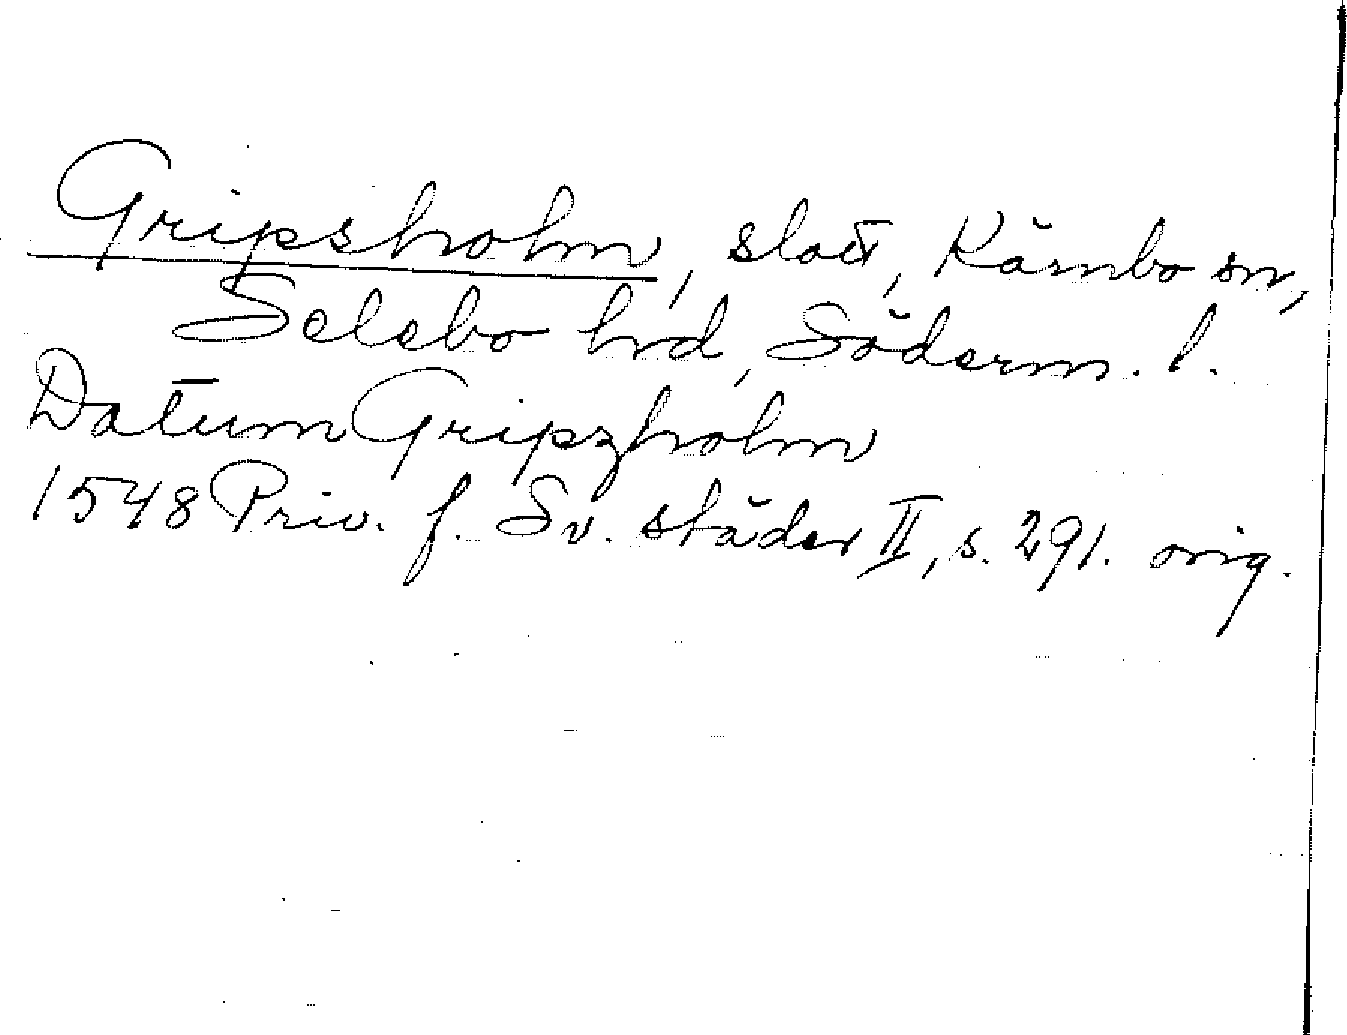 Gripsholm, slott, Kärnbo sn,
Selebo hrd, Söderm. l.
Datum Gripzholm
1548 Priv. f. Sv. städer II, s. 291. orig.